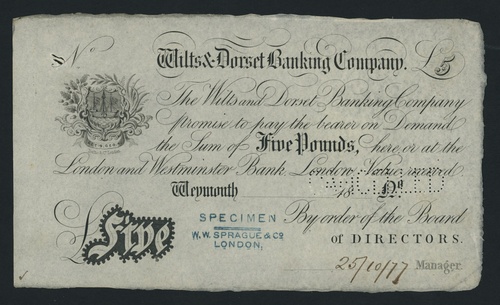 No. Wilts & Dorset Banking Company. £5
The Wilts and Dorset Banking Company
promise to pay the bearer on Demand
the Sum of Five Pounds, here or at the
London and Westminster Bank London Value received
Weymouth 18
By order of the Board
of DIRECTORS.
£Five
SPECIMEN
W.W. SPRAGUE & Co
LONDON.
25/10/77 Manager.